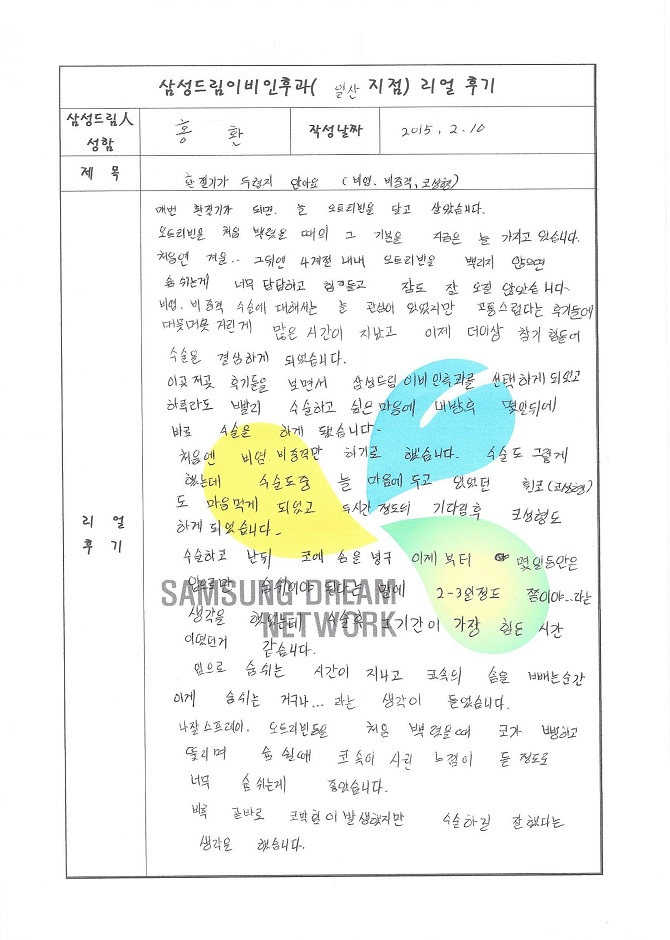 삼성드림이비인후과( 일산 지점) 리얼 후기
삼성드림人 성함
홍 환
작성날짜
2015. 2. 10
제 목
환절기가 두렵지 않아요 (비염, 비중격, 코성형)
리 얼 후 기
매번 환절기가 되면, 늘 오트리빈을 달고 살았습니다.
오트리빈을 처음 뿌렸을 때의 그 기분을 지금은 늘 가지고 있습니다.
처음엔 겨울.. 그뒤엔 4계절 내내 오트리빈을 뿌리지 않으면
숨 쉬는게 너무 답답하고 힘들고 잠도 잘 오질 않았습니다-
비염, 비중격 수술에 대해서는 늘 관심이 있었지만 고통스럽다는 후기들에
머뭇머뭇 거린게 많은 시간이 지났고 이제 더이상 참기 힘들어
수술을 결심하게 되었습니다.
이곳저곳 후기들을 보면서 삼성드림이비인후과를 선택하게 되었고
하루라도 빨리 수술하고 싶은 마음에 내방후 몇일뒤에
바로 수술을 하게 됐습니다-
처음엔 비염, 비중격만 하기로 했습니다. 수술도 그렇게
했는데 수술도중 늘 마음에 두고 있었던 휜코(코성형)
도 마음먹게 되었고 두시간 정도의 기다림후 코성형도
하게 되었습니다-
수술하고 난뒤 코에 솜을 넣구 이제부터 몇일동안은
입으로만 숨쉬어야 된다는 말에 2-3일정도 쯤이야..라는
생각을 했었는데 수술후 그기간이 가장 힘든 시간
이였던거 같습니다.
입으로 숨쉬는 시간이 지나고 코속의 솜을 빼는순간
이게 숨쉬는 거구나... 라는 생각이 들었습니다.
나잘스프레이, 오트리빈등을 처음 뿌렸을때 코가 뻥하고
뚫리며 숨 쉴때 코 속이 시린 느낌이 들 정도로
너무 숨 쉬는게 좋았습니다.
비록 곧바로 코막힘이 발생했지만 수술하길 잘했다는
생각을 했습니다.
SAMSUNG DREAM
NETWORK